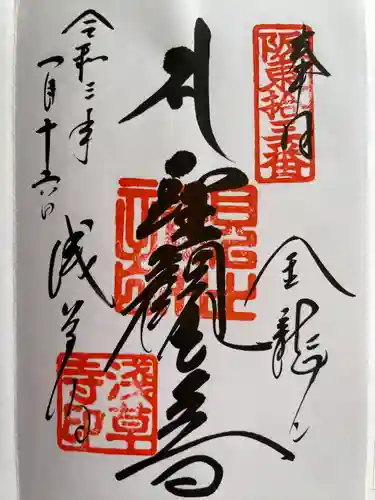 奉拝
阪東拾三番
金龍山
聖観世音
浅草寺
浅草寺印
令和三年
一月十六日